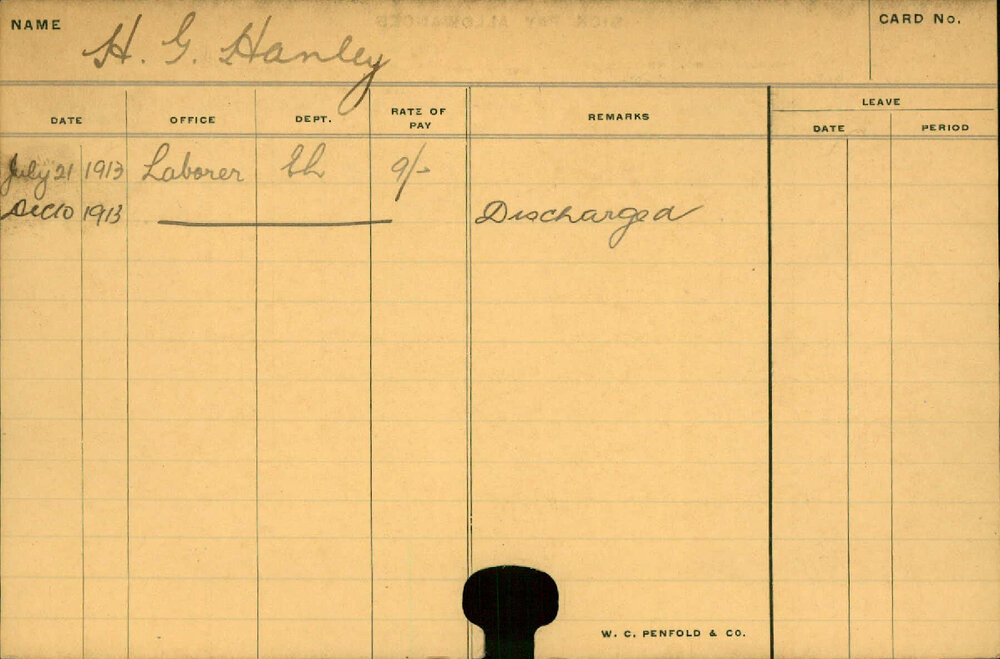 NAME H. G. Hanley CARD No.
DATE OFFICE DEPT. RATE OF PAY REMARKS LEAVE
DATE PERIOD
July 21 1913 Laborer 9/-
Dec 10 1913 Discharged
W. C. PENFOLD & CO.